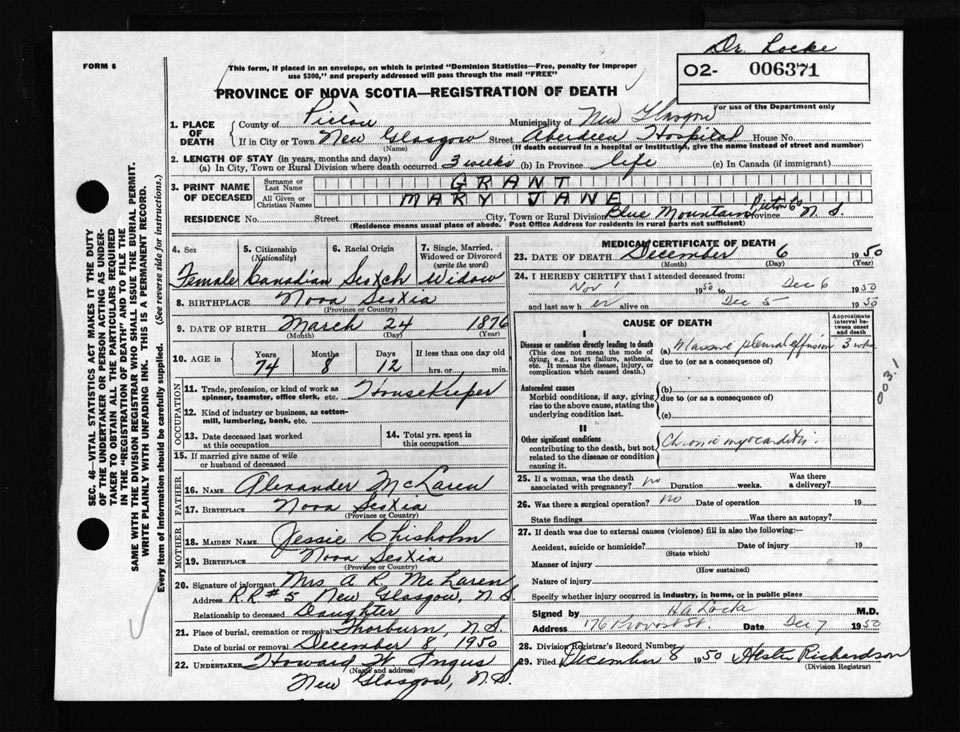 Dr. Locke
FORM 6
This form, if placed in an envelope, on which is printed "Dominion Statistics—Free, penalty for improper
use $300," and properly addressed will pass through the mail "FREE"
02- 006371
For use of the Department only
PROVINCE OF NOVA SCOTIA—REGISTRATION OF DEATH
1. PLACE OF DEATH
County of Pictou Municipality of New Glasgow
If in City or Town New Glasgow Street Aberdeen Hospital House No.
(Name) (If death occurred in a hospital or institution, give the name instead of street and number)
2. LENGTH OF STAY (in years, months and days)
(a) In City, Town or Rural Division where death occurred 3 weeks (b) In Province life (c) In Canada (if immigrant)
3. PRINT NAME OF DECEASED
Surname or Last Name GRANT
All Given or Christian Names MARY JANE
RESIDENCE No. Street City, Town or Rural Division Blue Mountain Pictou Co Province N.S.
(Residence means usual place of abode. Post Office Address for residents in rural parts not sufficient)
4. Sex
Female
5. Citizenship (Nationality)
Canadian
6. Racial Origin
Scotch
7. Single, Married, Widowed or Divorced (write the word)
Widow
8. BIRTHPLACE Nova Scotia
(Province or Country)
9. DATE OF BIRTH March 24 1876
(Month) (Day) (Year)
10. AGE in Years Months Days If less than one day old
74 8 12 hrs. or min.
OCCUPATION
11. Trade, profession, or kind of work as spinner, teamster, office clerk, etc. Housekeeper
12. Kind of industry or business, as cotton-mill, lumbering, bank, etc.
13. Date deceased last worked at this occupation
14. Total yrs. spent in this occupation
15. If married give name of wife or husband of deceased
FATHER
16. NAME Alexander McLaren
17. BIRTHPLACE Nova Scotia
(Province or Country)
MOTHER
18. MAIDEN NAME Jessie Chisholm
19. BIRTHPLACE Nova Scotia
(Province or Country)
20. Signature of informant Mrs A R. McLaren
Address R.R #5 New Glasgow, N.S
Relationship to deceased Daughter
21. Place of burial, cremation or removal Thorburn, N.S.
Date of burial or removal December 8, 1950
22. UNDERTAKER Howard W. Angus
(Name and address)
New Glasgow, N.S.
MEDICAL CERTIFICATE OF DEATH
23. DATE OF DEATH December 6 1950
(Month) (Day) (Year)
24. I HEREBY CERTIFY that I attended deceased from
Nov 1 1950 to Dec 6 1950
and last saw her alive on Dec 5 1950
CAUSE OF DEATH
Approximate interval between onset and death
I
Disease or condition directly leading to death
(This does not mean the mode of dying, e.g., heart failure, asthenia, etc. It means the disease, injury, or complication which caused death.)
(a) Massive pleural effusion 3 wks
due to (or as a consequence of)
Antecedent causes
Morbid conditions, if any, giving rise to the above cause, stating the underlying condition last.
(b)
due to (or as a consequence of)
(c)
II
Other significant conditions
contributing to the death, but not related to the disease or condition causing it.
Chronic myocarditis.
25. If a woman, was the death associated with pregnancy? no Duration weeks. Was there a delivery?
26. Was there a surgical operation? no Date of operation 19
State findings Was there an autopsy?
27. If death was due to external causes (violence) fill in also the following:
Accident, suicide or homicide? Date of injury 19
(State which)
Manner of injury
(How sustained)
Nature of injury
Specify whether injury occurred in industry, in home, or in public place
Signed by H A Locke M.D.
Address 176 Provost St. Date Dec 7 1950
28. Division Registrar's Record Number
29. Filed December 8 1950 Hester Richardson
(Division Registrar)
SEC. 46—VITAL STATISTICS ACT MAKES IT THE DUTY
OF THE UNDERTAKER OR PERSON ACTING AS UNDER-
TAKER TO OBTAIN ALL THE PARTICULARS REQUIRED
IN THE "REGISTRATION OF DEATH" AND TO FILE THE
SAME WITH THE DIVISION REGISTRAR WHO SHALL ISSUE THE BURIAL PERMIT.
WRITE PLAINLY WITH UNFADING INK. THIS IS A PERMANENT RECORD.
Every item of Information should be carefully supplied. (See reverse side for instructions.)